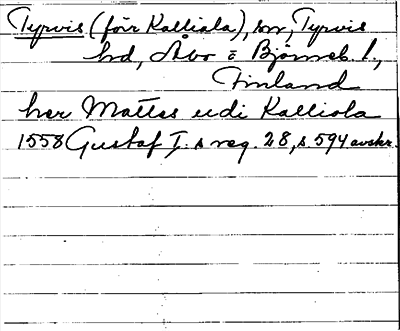 Tyrvis (förr Kalliala), sn, Tyrvis
hd, Åbo o Björneb. l.,
Finland
her Mattes udi Kalliola
1558 Gustaf I:s reg. 28, s. 594 avskr.